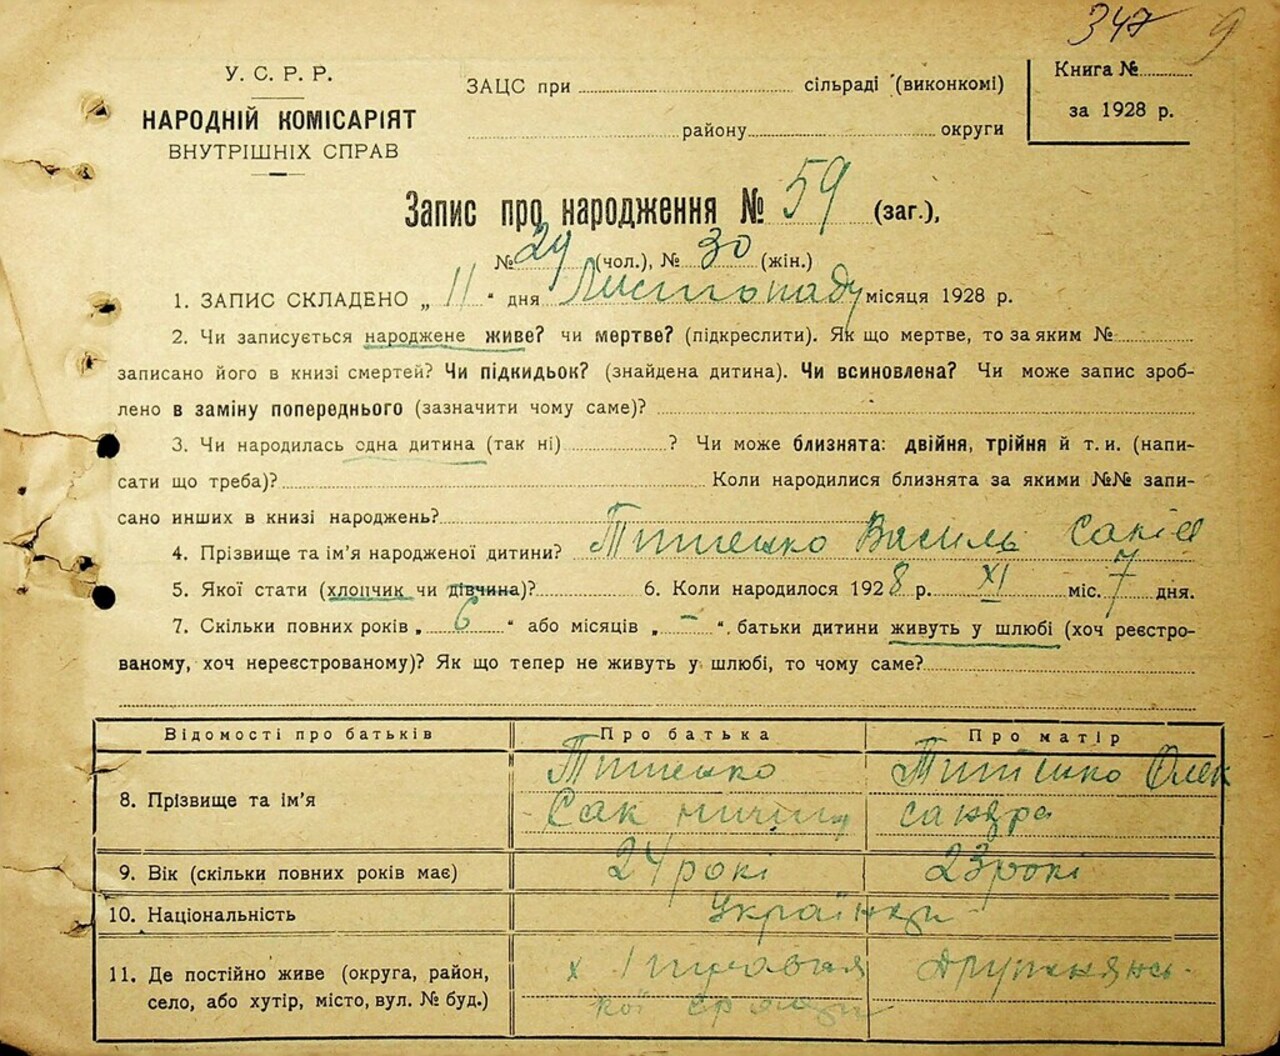 347 9
У. С. Р. Р.
НАРОДНІЙ КОМІСАРІЯТ
ВНУТРІШНІХ СПРАВ
ЗАЦС при сільраді (виконкомі)
району округи
Книга №
за 1928 р.
Запис про народження № 59 (заг.),
№ 29 (чол.), № 30 (жін.)
1. ЗАПИС СКЛАДЕНО „ 11 “ дня Листопаду місяця 1928 р.
2. Чи записується народжене живе? чи мертве? (підкреслити). Як що мертве, то за яким №
записано його в книзі смертей? Чи підкидьок? (знайдена дитина). Чи всиновлена? Чи може запис зроб-
лено в заміну попереднього (зазначити чому саме)?
3. Чи народилась одна дитина (так ні) ? Чи може близнята: двійня, трійня й т. и. (напи-
сати що треба)? Коли народилися близнята за якими №№ запи-
сано инших в книзі народжень?
4. Прізвище та ім’я народженої дитини? Василь
5. Якої стати (хлопчик чи дівчина)? 6. Коли народилося 1928 р. XI міс. 7 дня.
7. Скільки повних років „ 6 “ або місяців „ – “. батьки дитини живуть у шлюбі (хоч реєстро-
ваному, хоч нереєстрованому)? Як що тепер не живуть у шлюбі, то чому саме?
Відомості про батьків Про батька Про матір
8. Прізвище та ім’я Сак Олек
сандра
9. Вік (скільки повних років має) 24 рокі 23 рокі
10. Національність Українци
11. Де постійно живе (округа, район,
село, або хутір, місто, вул. № буд.)